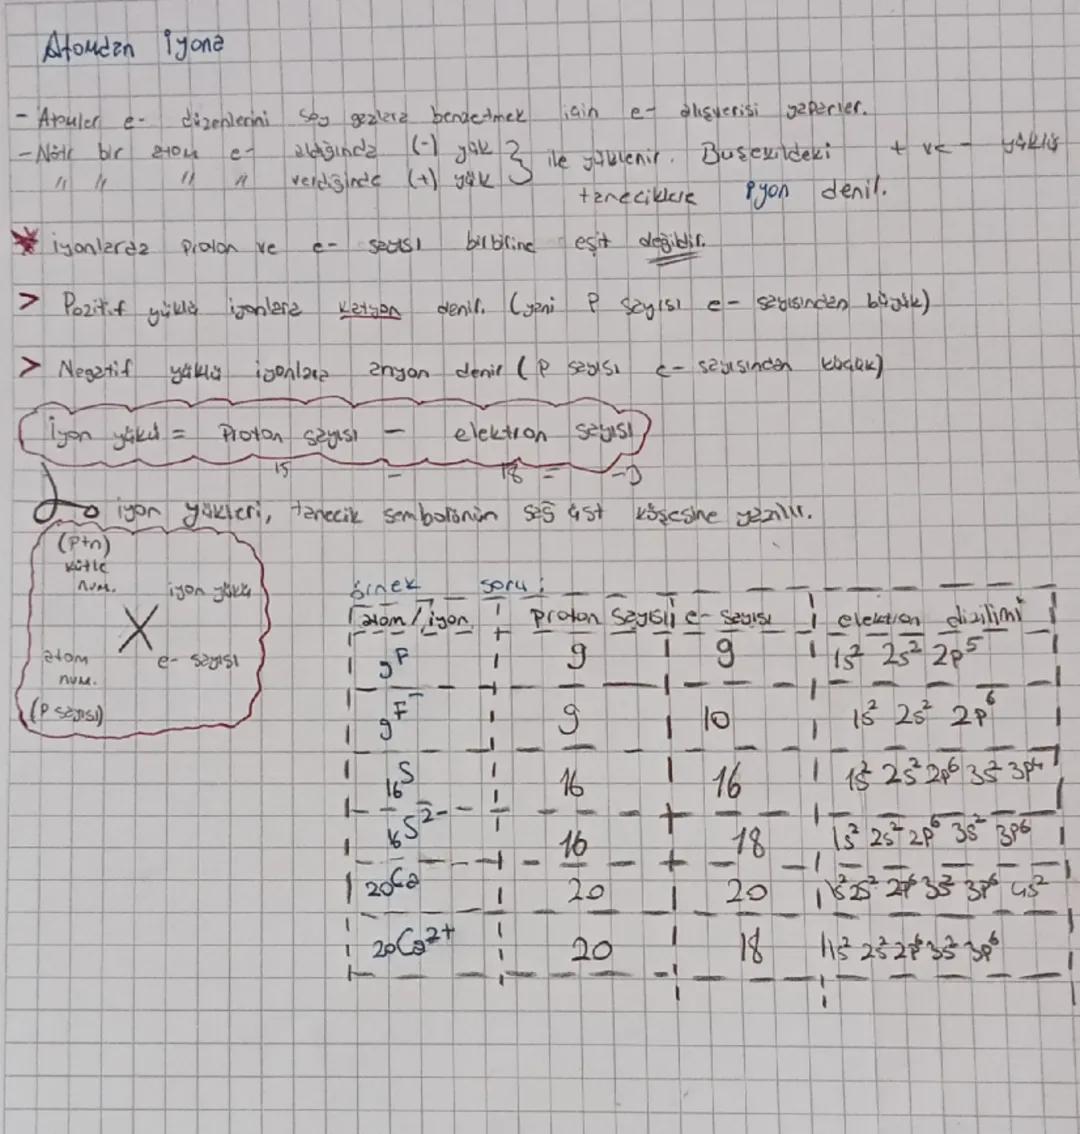 Atomdan İyona
- Atomlar e- dizenlerini soy gazlara benzetmek için e- alışverişi yaparlar.
- Nötr bir atom e- aldığında (-) yük } ile yüklenir. Bu şekildeki + ve - yüklü
" " " " verdiğinde (+) yük taneciklere iyon denil.
* iyonlarda proton ve e- sayısı birbirine eşit değildir.
> Pozitif yüklü iyonlara katyon denil. (yani P sayısı e- sayısından büyük)
> Negatif yüklü iyonlara anyon denir (P sayısı e- sayısından küçük)
İyon yükü = Proton sayısı - elektron sayısı
15 - 18 = -3
iyon yükleri, tanecik sembolünün sağ üst köşesine yazılır.
(P+n)
kütle
num.
iyon yükü
X
atom
num.
e- sayısı
(P sayısı)
örnek soru:
atom/iyon proton sayısı e- sayısı elektron dizilimi
₉F 9 9 1s² 2s² 2p⁵
₉F⁻ 9 10 1s² 2s² 2p⁶
₁₆S 16 16 1s² 2s² 2p⁶ 3s² 3p⁴
₁₆S²⁻ 16 18 1s² 2s² 2p⁶ 3s² 3p⁶
₂₀Ca 20 20 1s² 2s² 2p⁶ 3s² 3p⁶ 4s²
₂₀Ca²⁺ 20 18 1s² 2s² 2p⁶ 3s² 3p⁶